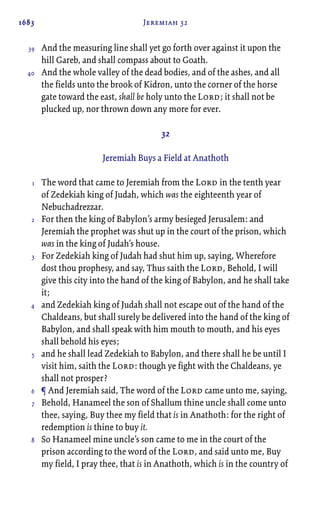 1683 Jeremiah 32
39 And the measuring line shall yet go forth over against it upon the
hill Gareb, and shall compass about to Goath.
40 And the whole valley of the dead bodies, and of the ashes, and all
the fields unto the brook of Kidron, unto the corner of the horse
gate toward the east, shall be holy unto the Lord; it shall not be
plucked up, nor thrown down any more for ever.
32
Jeremiah Buys a Field at Anathoth
1 The word that came to Jeremiah from the Lord in the tenth year
of Zedekiah king of Judah, which was the eighteenth year of
Nebuchadrezzar.
2 For then the king of Babylon’s army besieged Jerusalem: and
Jeremiah the prophet was shut up in the court of the prison, which
was in the king of Judah’s house.
3 For Zedekiah king of Judah had shut him up, saying, Wherefore
dost thou prophesy, and say, Thus saith the Lord, Behold, I will
give this city into the hand of the king of Babylon, and he shall take
it;
4 and Zedekiah king of Judah shall not escape out of the hand of the
Chaldeans, but shall surely be delivered into the hand of the king of
Babylon, and shall speak with him mouth to mouth, and his eyes
shall behold his eyes;
5 and he shall lead Zedekiah to Babylon, and there shall he be until I
visit him, saith the Lord: though ye fight with the Chaldeans, ye
shall not prosper?
6 ¶ And Jeremiah said, The word of the Lord came unto me, saying,
7 Behold, Hanameel the son of Shallum thine uncle shall come unto
thee, saying, Buy thee my field that is in Anathoth: for the right of
redemption is thine to buy it.
8 So Hanameel mine uncle’s son came to me in the court of the
prison according to the word of the Lord, and said unto me, Buy
my field, I pray thee, that is in Anathoth, which is in the country of